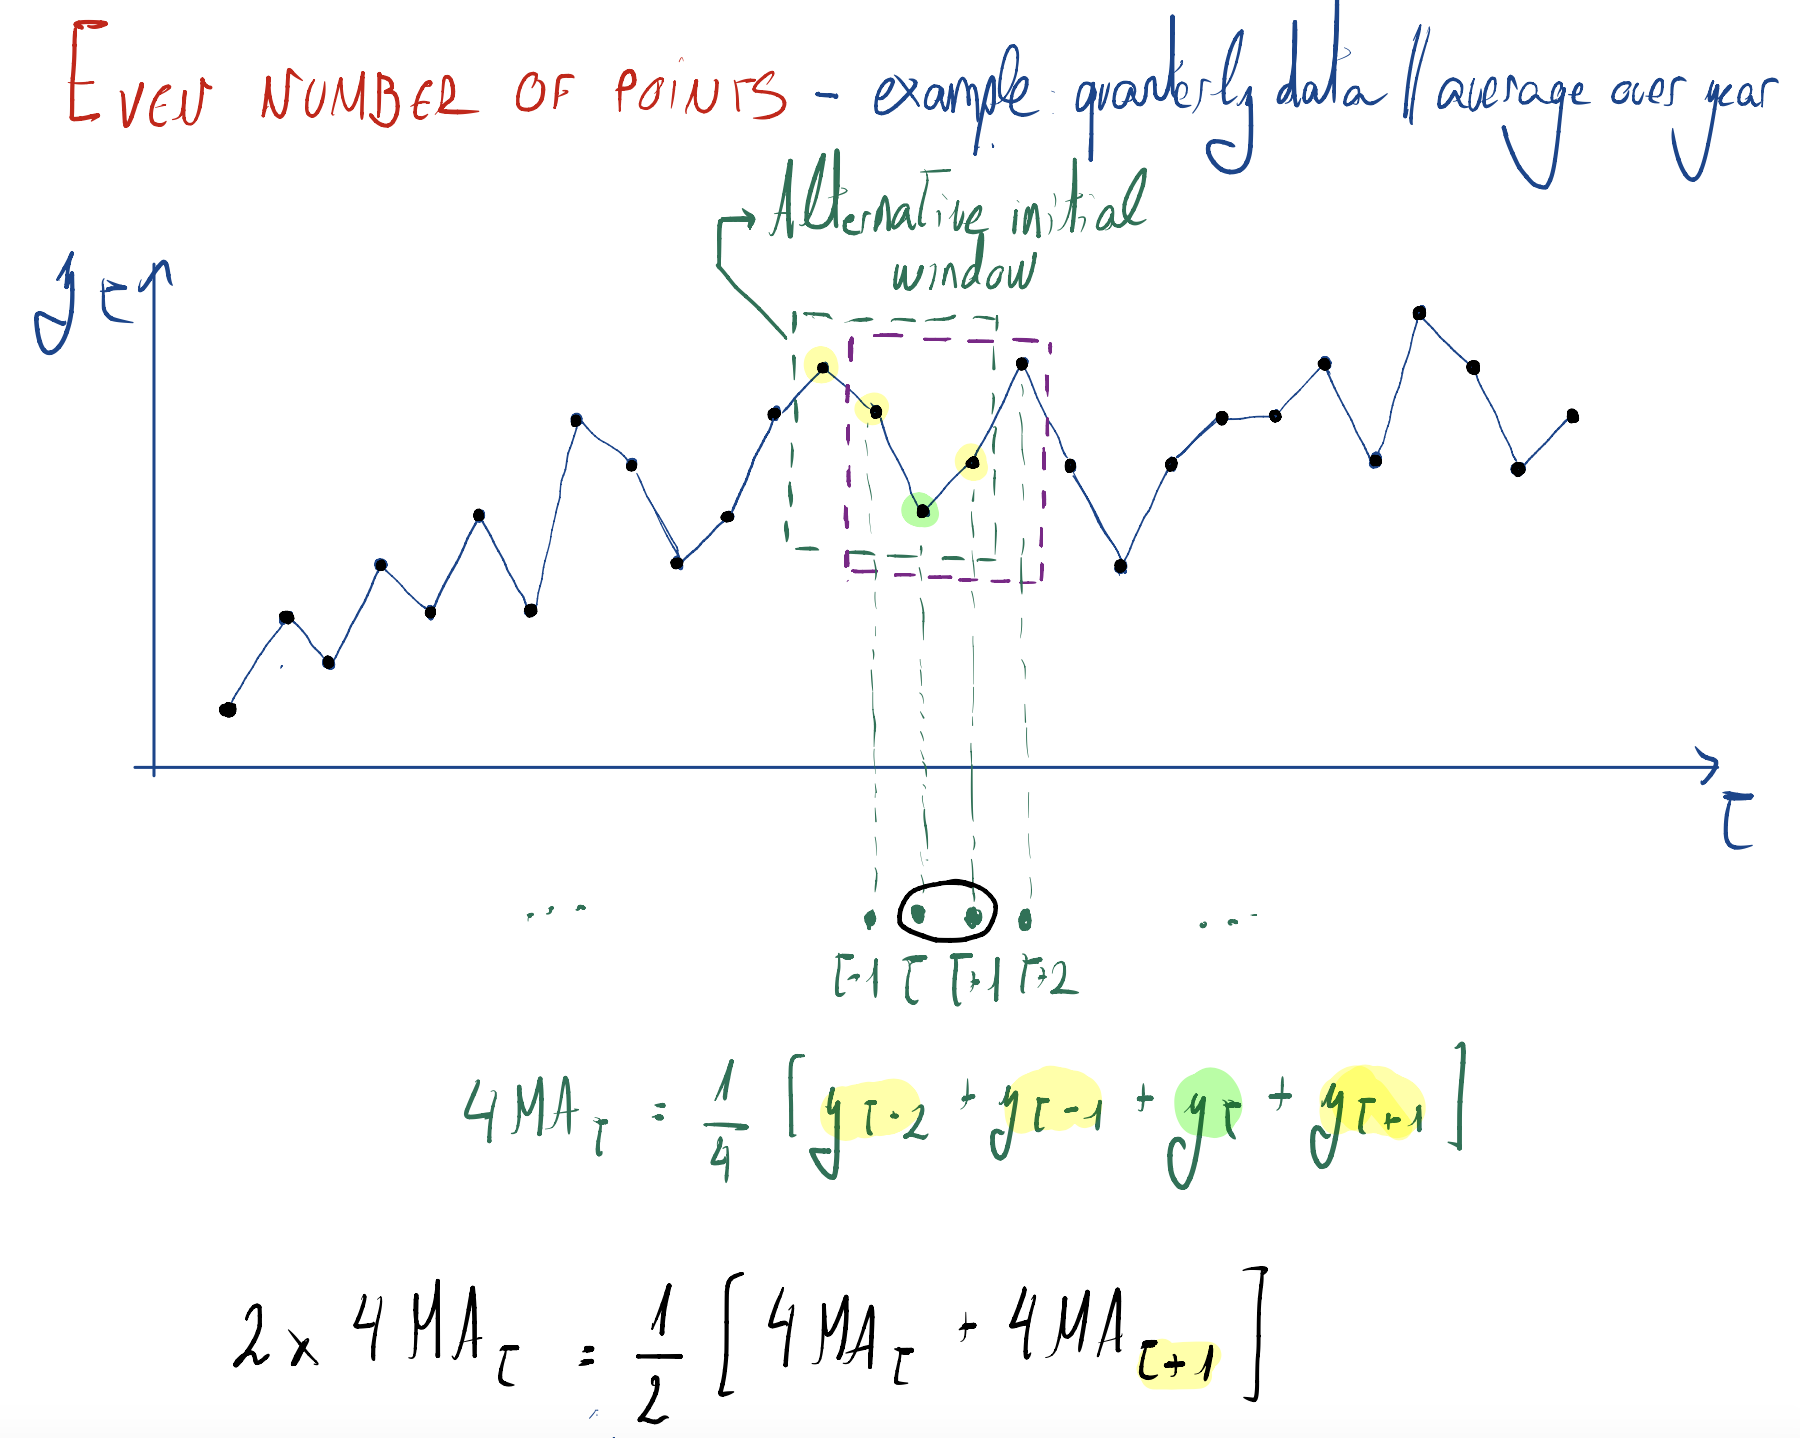 EVEN NUMBER OF POINTS - example: quarterly data // average over year
Alternative initial
window
y t
t
... ...
t-1 t t+1 t+2
4MA_t = 1/4 [y_t-2 + y_t-1 + y_t + y_t+1]
2 x 4MA_t = 1/2 [4MA_t + 4MA_t+1]